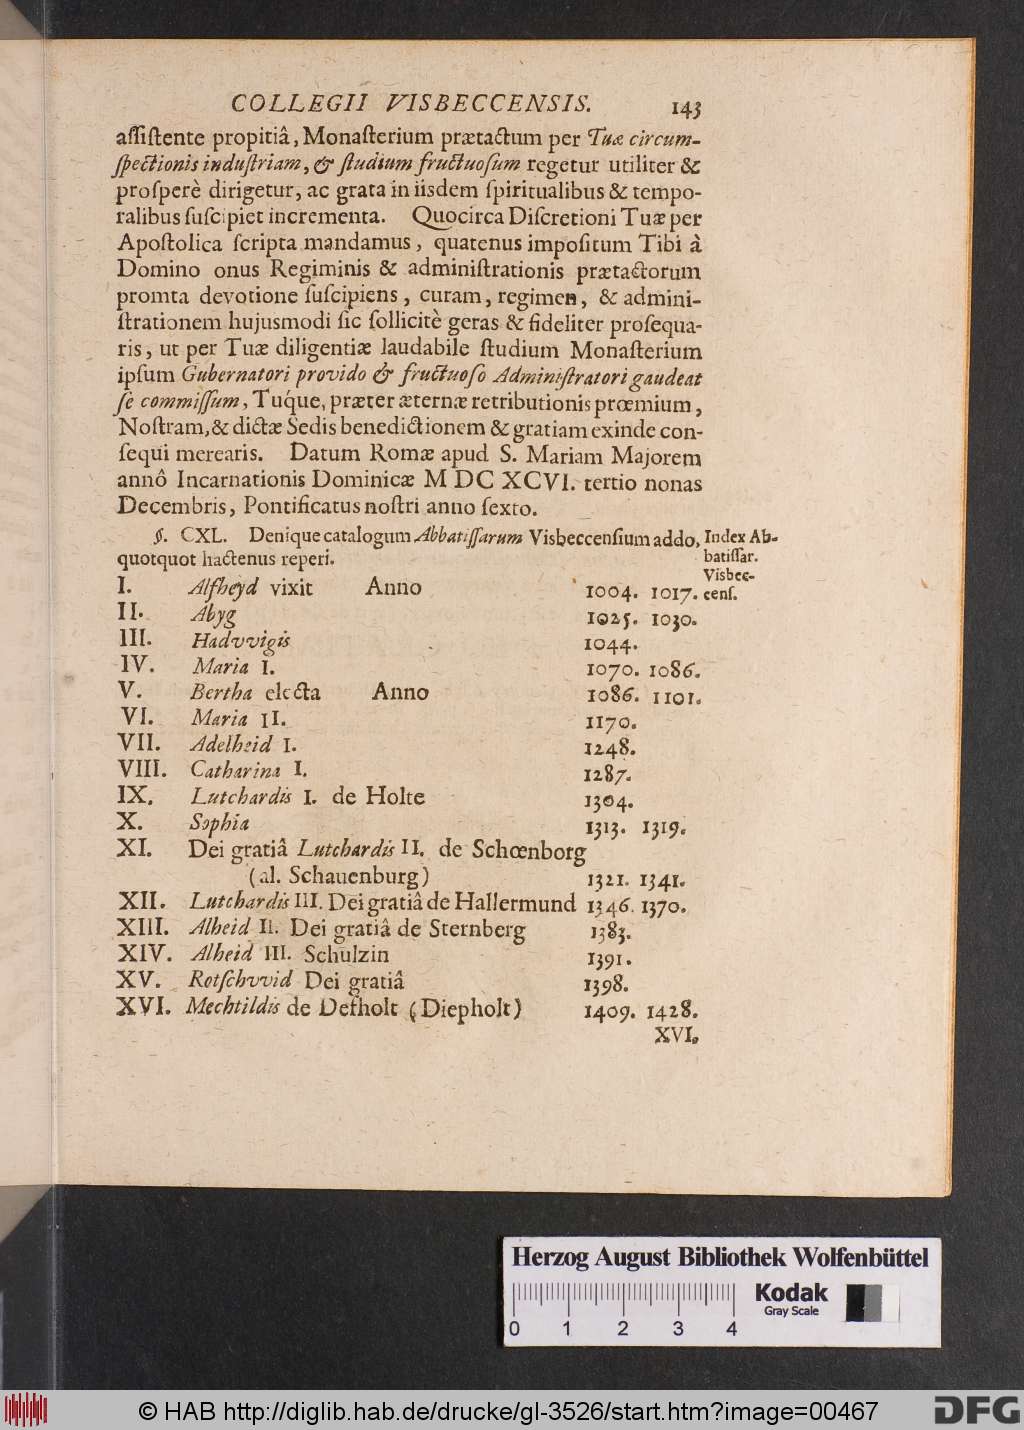 COLLEGII VISBECCENSIS. 143
aſſiſtente propitiâ, Monaſterium prætactum per Tuæ circum-
ſpectionis induſtriam, & ſtudium fructuoſum regetur utiliter &
proſperè dirigetur, ac grata in iisdem ſpiritualibus & tempo-
ralibus ſuſcipiet incrementa. Quocirca Diſcretioni Tuæ per
Apoſtolica ſcripta mandamus, quatenus impoſitum Tibi à
Domino onus Regiminis & adminiſtrationis prætactorum
promta devotione ſuſcipiens, curam, regimen, & admini-
ſtrationem hujusmodi ſic ſollicitè geras & fideliter proſequa-
ris, ut per Tuæ diligentiæ laudabile ſtudium Monaſterium
ipſum Gubernatori provido & fructuoſo Adminiſtratori gaudeat
ſe commiſſum, Tuque, præter æternæ retributionis prœmium,
Noſtram, & dictæ Sedis benedictionem & gratiam exinde con-
ſequi merearis. Datum Romæ apud S. Mariam Majorem
annô Incarnationis Dominicæ M DC XCVI. tertio nonas
Decembris, Pontificatus noſtri anno ſexto.
§. CXL. Denique catalogum Abbatiſſarum Visbeccenſium addo,
quotquot hactenus reperi.
Index Ab-
batiſſar.
Visbec-
cenſ.
I. Alfheyd vixit Anno 1004. 1017.
II. Abyg 1025. 1030.
III. Hadvvigis 1044.
IV. Maria I. 1070. 1086.
V. Bertha electa Anno 1086. 1101.
VI. Maria II. 1170.
VII. Adelheid I. 1248.
VIII. Catharina I. 1287.
IX. Lutchardis I. de Holte 1304.
X. Sophia 1313. 1319.
XI. Dei gratiâ Lutchardis II. de Schœnborg
(al. Schauenburg) 1321. 1341.
XII. Lutchardis III. Dei gratiâ de Hallermund 1346. 1370.
XIII. Alheid II. Dei gratiâ de Sternberg 1383.
XIV. Alheid III. Schulzin 1391.
XV. Rotſchvvid Dei gratiâ 1398.
XVI. Mechtildis de Defholt (Diepholt) 1409. 1428.
XVI.
Herzog August Bibliothek Wolfenbüttel
Kodak
Gray Scale
0 1 2 3 4
© HAB http://diglib.hab.de/drucke/gl-3526/start.htm?image=00467
DFG